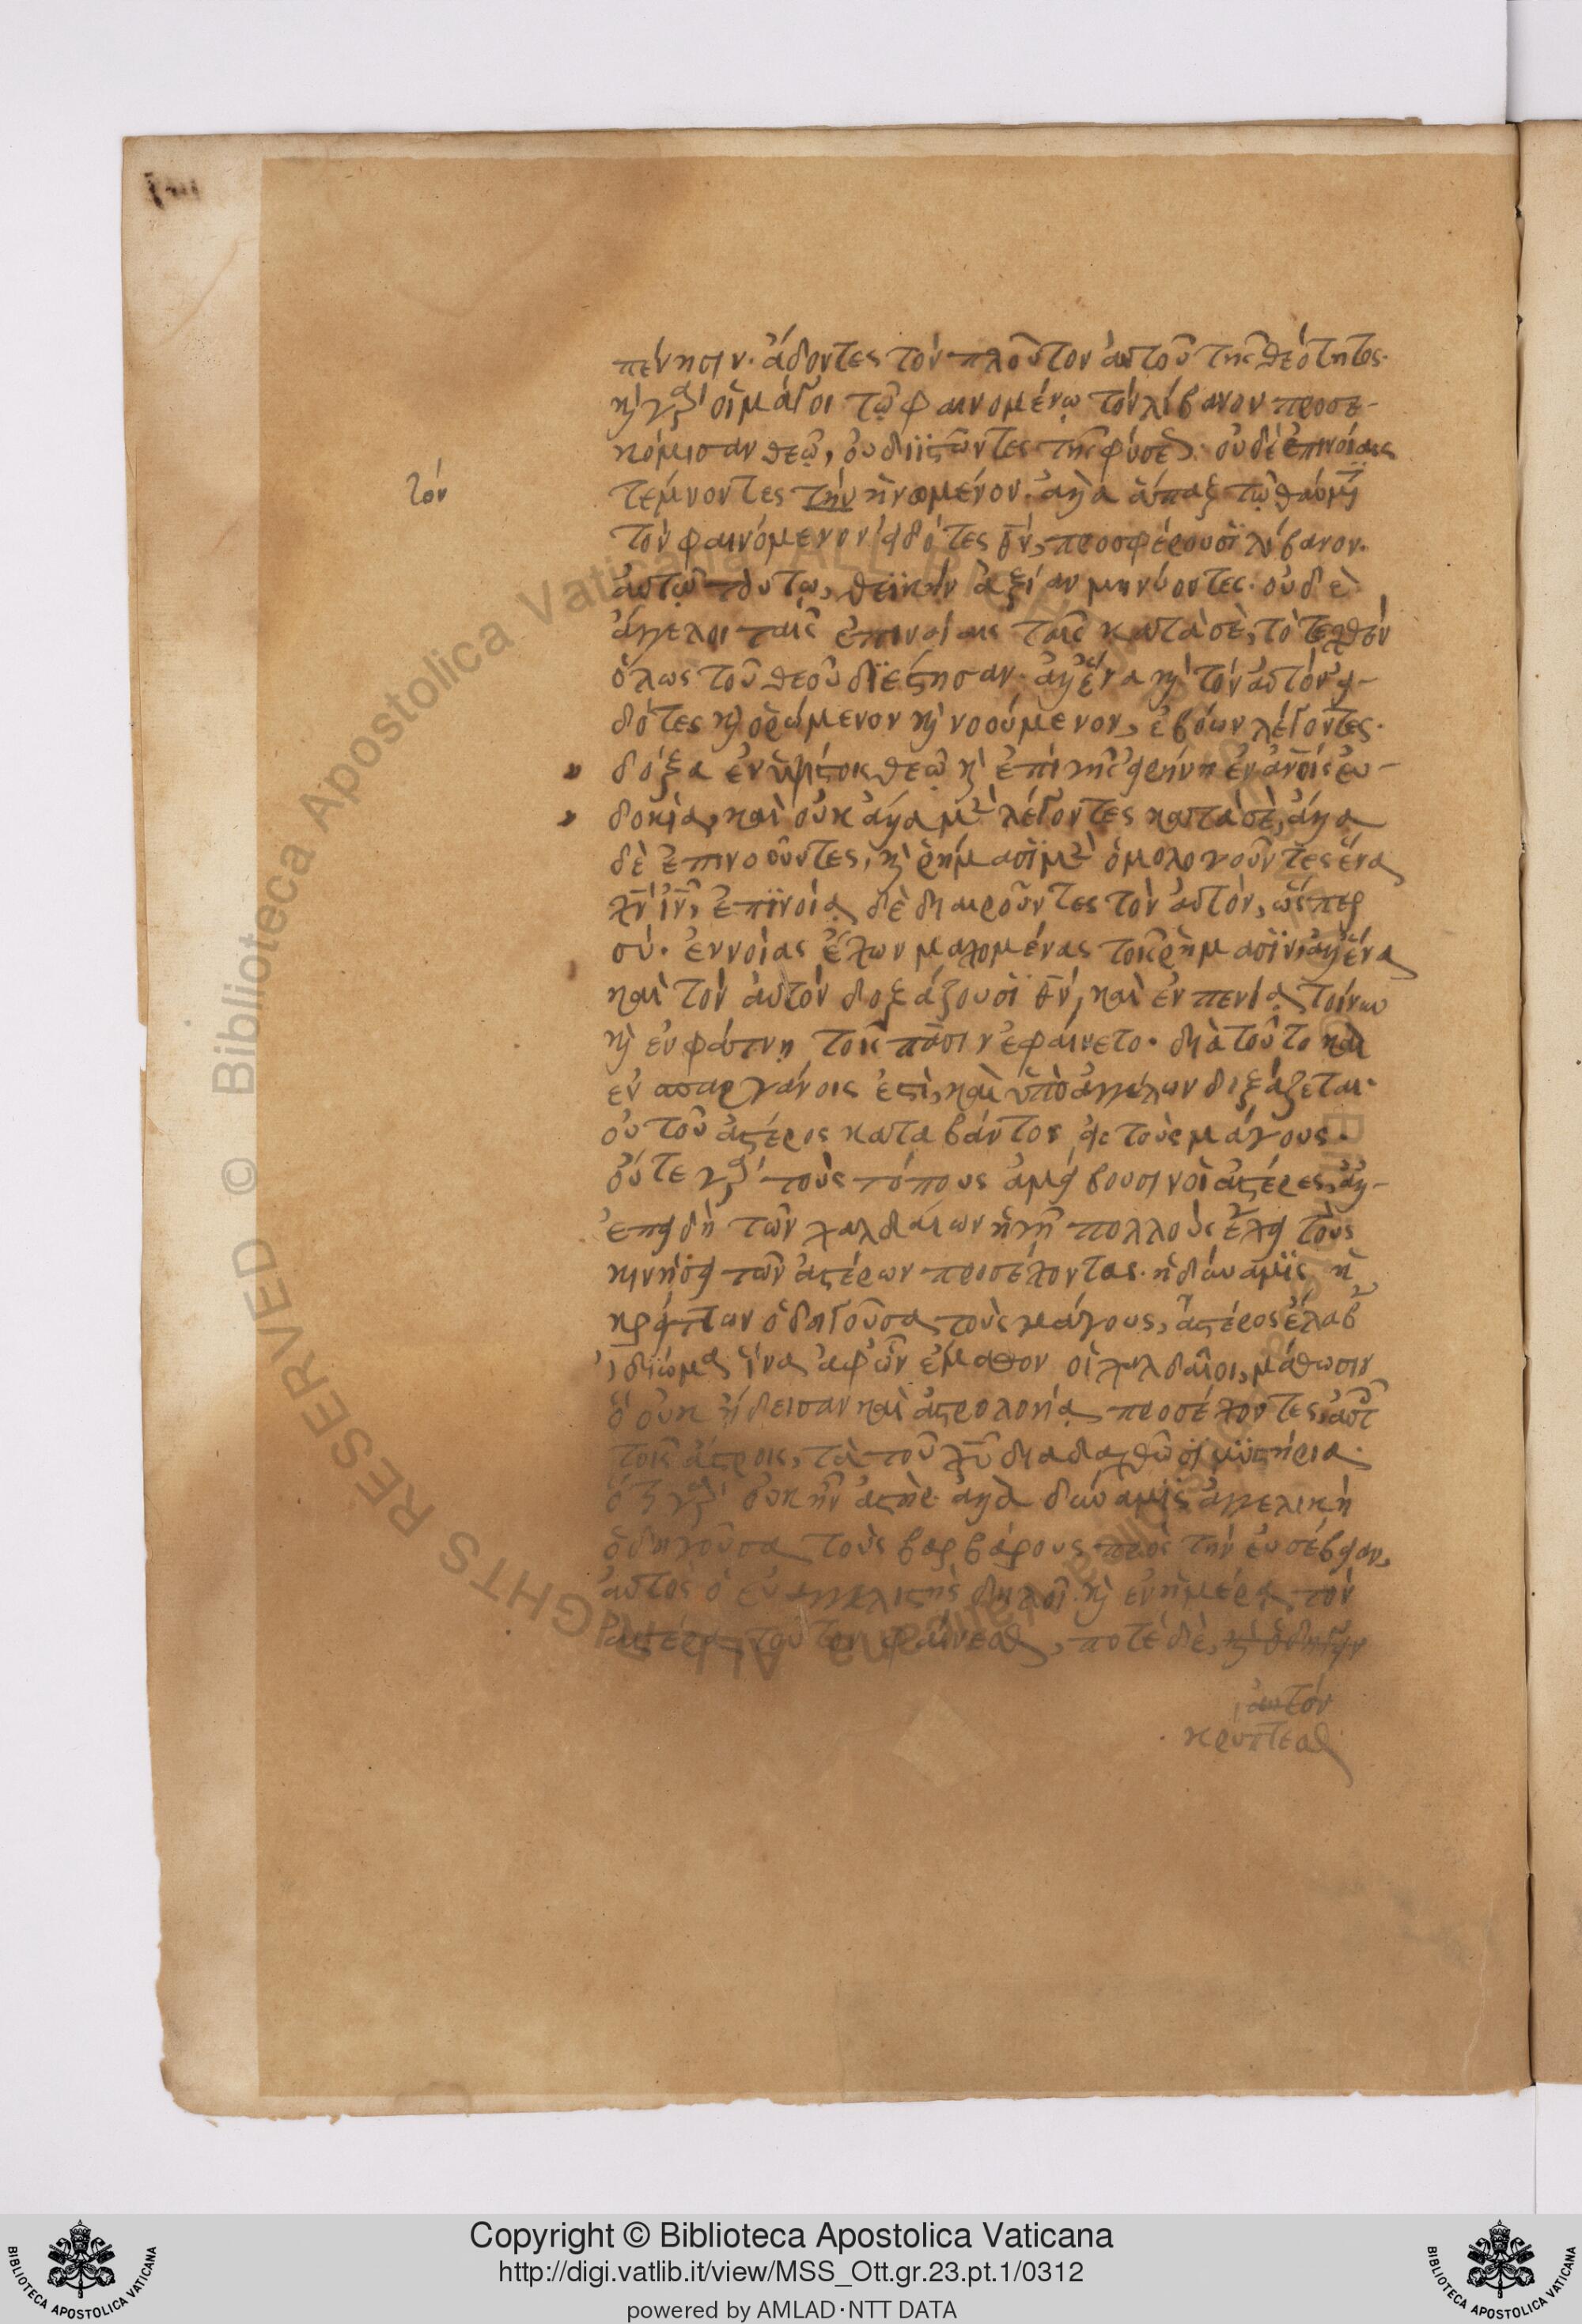 πένησιν. ἄδοντες τὸν πλοῦτον αὐτοῦ τῆς θεότητος.
κỳ γὰρ οἱ μάγοι τῷ φαινομένῳ τὸν λίβανον προσε-
κόμισαν θεῷ, οὐ διϊστῶντες τῆς φύσεως. οὐδὲ ἐπινοίαις
τὸν
τέμνοντες τὴν ἡνωμένον. ἀλλὰ ἅπαξ τῷ θαύματι
τὸν φαινόμενον εἰδότες θν̄, προσφέρουσι λίβανον.
αὐτῷ τούτῳ, θεϊκὴν ἀξίαν μηνύοντες. οὐδὲ
ἄγγελοι ταῖς ἐπινοίαις ταῖς κατὰ σὲ, τὸ τεχθὲν
ὅλως τοῦ θεοῦ διέστησαν. ἀλλ' ἕνα καὶ τὸν αὐτὸν εἰ-
δότες καὶ ὁρώμενον καὶ νοούμενον, ἐβόων λέγοντες.
δόξα ἐν ὑψίστοις θεῷ καὶ ἐπὶ γῆς εἰρήνη ἐν ἀνοῖς εὐ-
δοκία, καὶ οὐκ ἄλλα μὲν λέγοντες κατὰ σὲ, ἄλλα
δὲ ἐπινοοῦντες, καὶ ῥήμασι μὲν ὁμολογοῦντες ἕνα
χν̄ ιν̄, ἐπινοίᾳ δὲ διαιροῦντες τὸν αὐτὸν, ὥσπερ
σύ. ἐννοίας ἔχων μαχομένας τοῖς ῥήμασιν ἀλλ' ἕνα
καὶ τὸν αὐτὸν δοξάζουσι θν̄, καὶ ἐν πενίᾳ τοίνυν
καὶ ἐν φάτνῃ τοῖς πᾶσιν ἐφαίνετο. διὰ τοῦτο καὶ
ἐν σπαργάνοις ἐστὶ, καὶ ὑπὸ ἀγγέλων δοξάζεται.
οὐ τοῦ ἀστέρος καταβάντος εἰς τοὺς μάγους.
οὔτε γὰρ τοὺς τόπους ἀμείβουσιν οἱ ἀστέρες, ἀλλ'
ἐπειδὴ τῶν χαλδαίων ἡ γῆ πολλοὺς ἔχει τοὺς
κινήσει τῶν ἀστέρων προσέχοντας. ἡ δύναμις ἡ
κρείττων ὁδηγοῦσα τοὺς μάγους, ἀστέρος ἔλαβεν
ἰδίωμα ἵνα ἀφ' ὧν ἔμαθον οἱ χαλδαῖοι, μάθωσιν
ὃ οὐκ ᾔδεισαν καὶ ἀστρολογίᾳ προσέχοντες αὐτ
τοῖς ἄστροις, τὰ τοῦ χῡ διδαχθῶσι μυστήρια.
ὅτι γὰρ οὐκ ἦν ἀστὴρ ἀλλὰ δύναμις ἀγγελικὴ
ὁδηγοῦσα τοὺς βαρβάρους πρὸς τὴν εὐσέβειαν,
αὐτὸς ὁ εὐαγγελιστὴς δηλοῖ καὶ ἐν ἡμέρᾳ τὸν
ἀστέρα τοῦτον φαίνεσθαι, ποτὲ δὲ, καὶ ὁδηγεῖν
αὐτόν
κρύπτεσθαι
Copyright © Biblioteca Apostolica Vaticana
http://digi.vatlib.it/view/MSS_Ott.gr.23.pt.1/0312
powered by AMLAD·NTT DATA